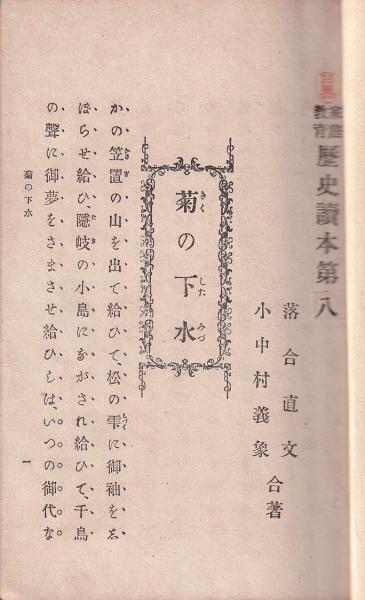 家庭
教育
歷史讀本第八
落合直文
小中村義象
合著
菊の下水
かの笠置の山を出て給ひて、松の雫に御袖をし
ほらせ給ひ、隱岐の小島にながされ給ひて、千鳥
の聲に御夢をさまさせ給ひしは、いつの御代な
菊の下水
一